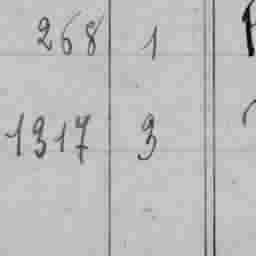 268 1
1317 3